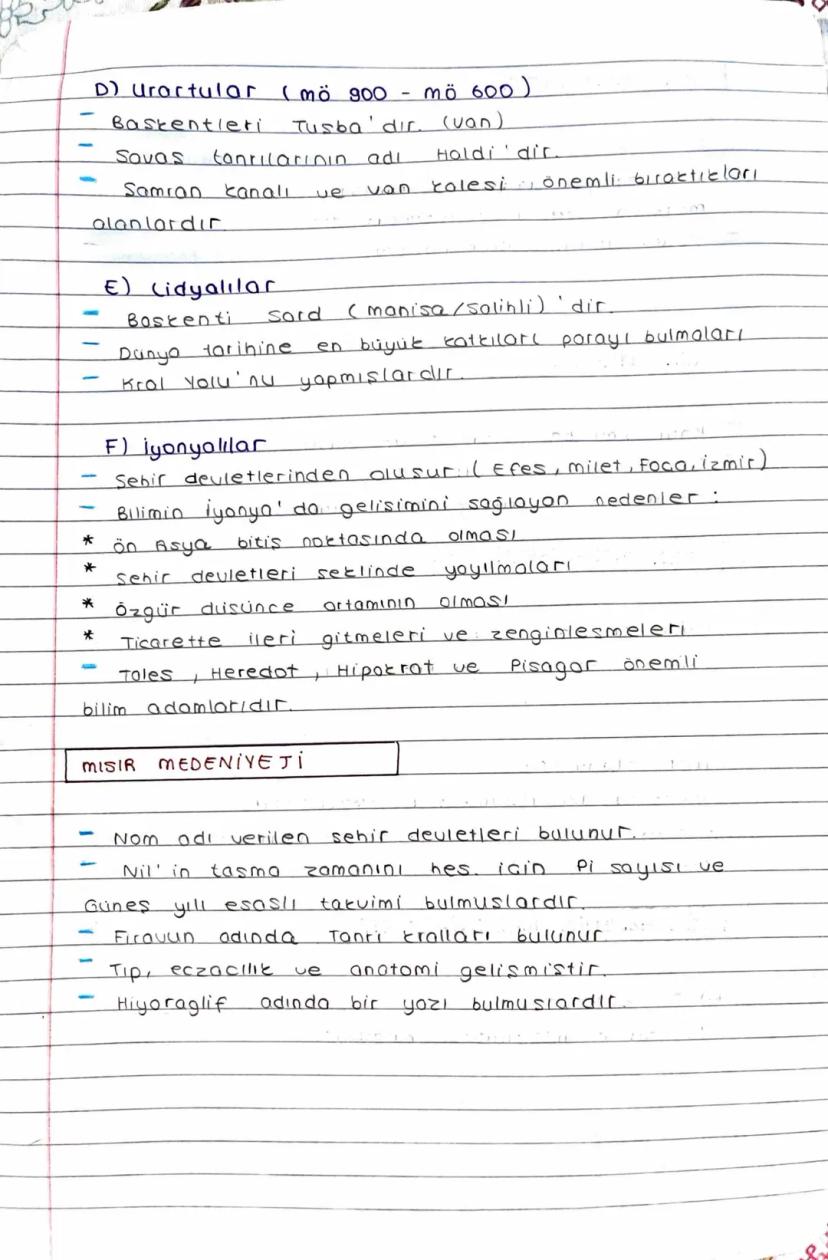 D) Urartular (mö 900 - mö 600)
- Baskentleri Tusba'dır. (Van)
- Savas tanrılarının adı Haldi'dir.
- Samran kanalı ve Van kalesi, önemli bıraktıkları
alanlardır
E) Lidyalılar
- Baskenti Sard (manisa/salihli)'dir.
- Dünya tarihine en büyük katkıları parayı bulmaları
- Kral Yolu'nu yapmıslardır.
F) İyonyalılar
- Sehir devletlerinden olusur. (Efes, milet, Foca, izmir)
- Bilimin İyonya'da gelisimini sağlayan nedenler :
* ön Asya bitis noktasında olması
* sehir devletleri seklinde yayılmaları
* özgür düsünce ortamının olması
* Ticarette ileri gitmeleri ve zenginlesmeleri
- Tales, Heredot, Hipokrat ve Pisagor önemli
bilim adamlarıdır.
MISIR MEDENİYETİ
- Nom adı verilen sehir devletleri bulunur.
- Nil'in tasma zamanını hes. icin Pi sayısı ve
Günes yılı esaslı takvimi bulmuslardır.
- Firavun adında Tanrı kralları bulunur.
- Tıp, eczacılık ve anatomi gelismistir.
- Hiyoraglif adında bir yazı bulmuslardır.